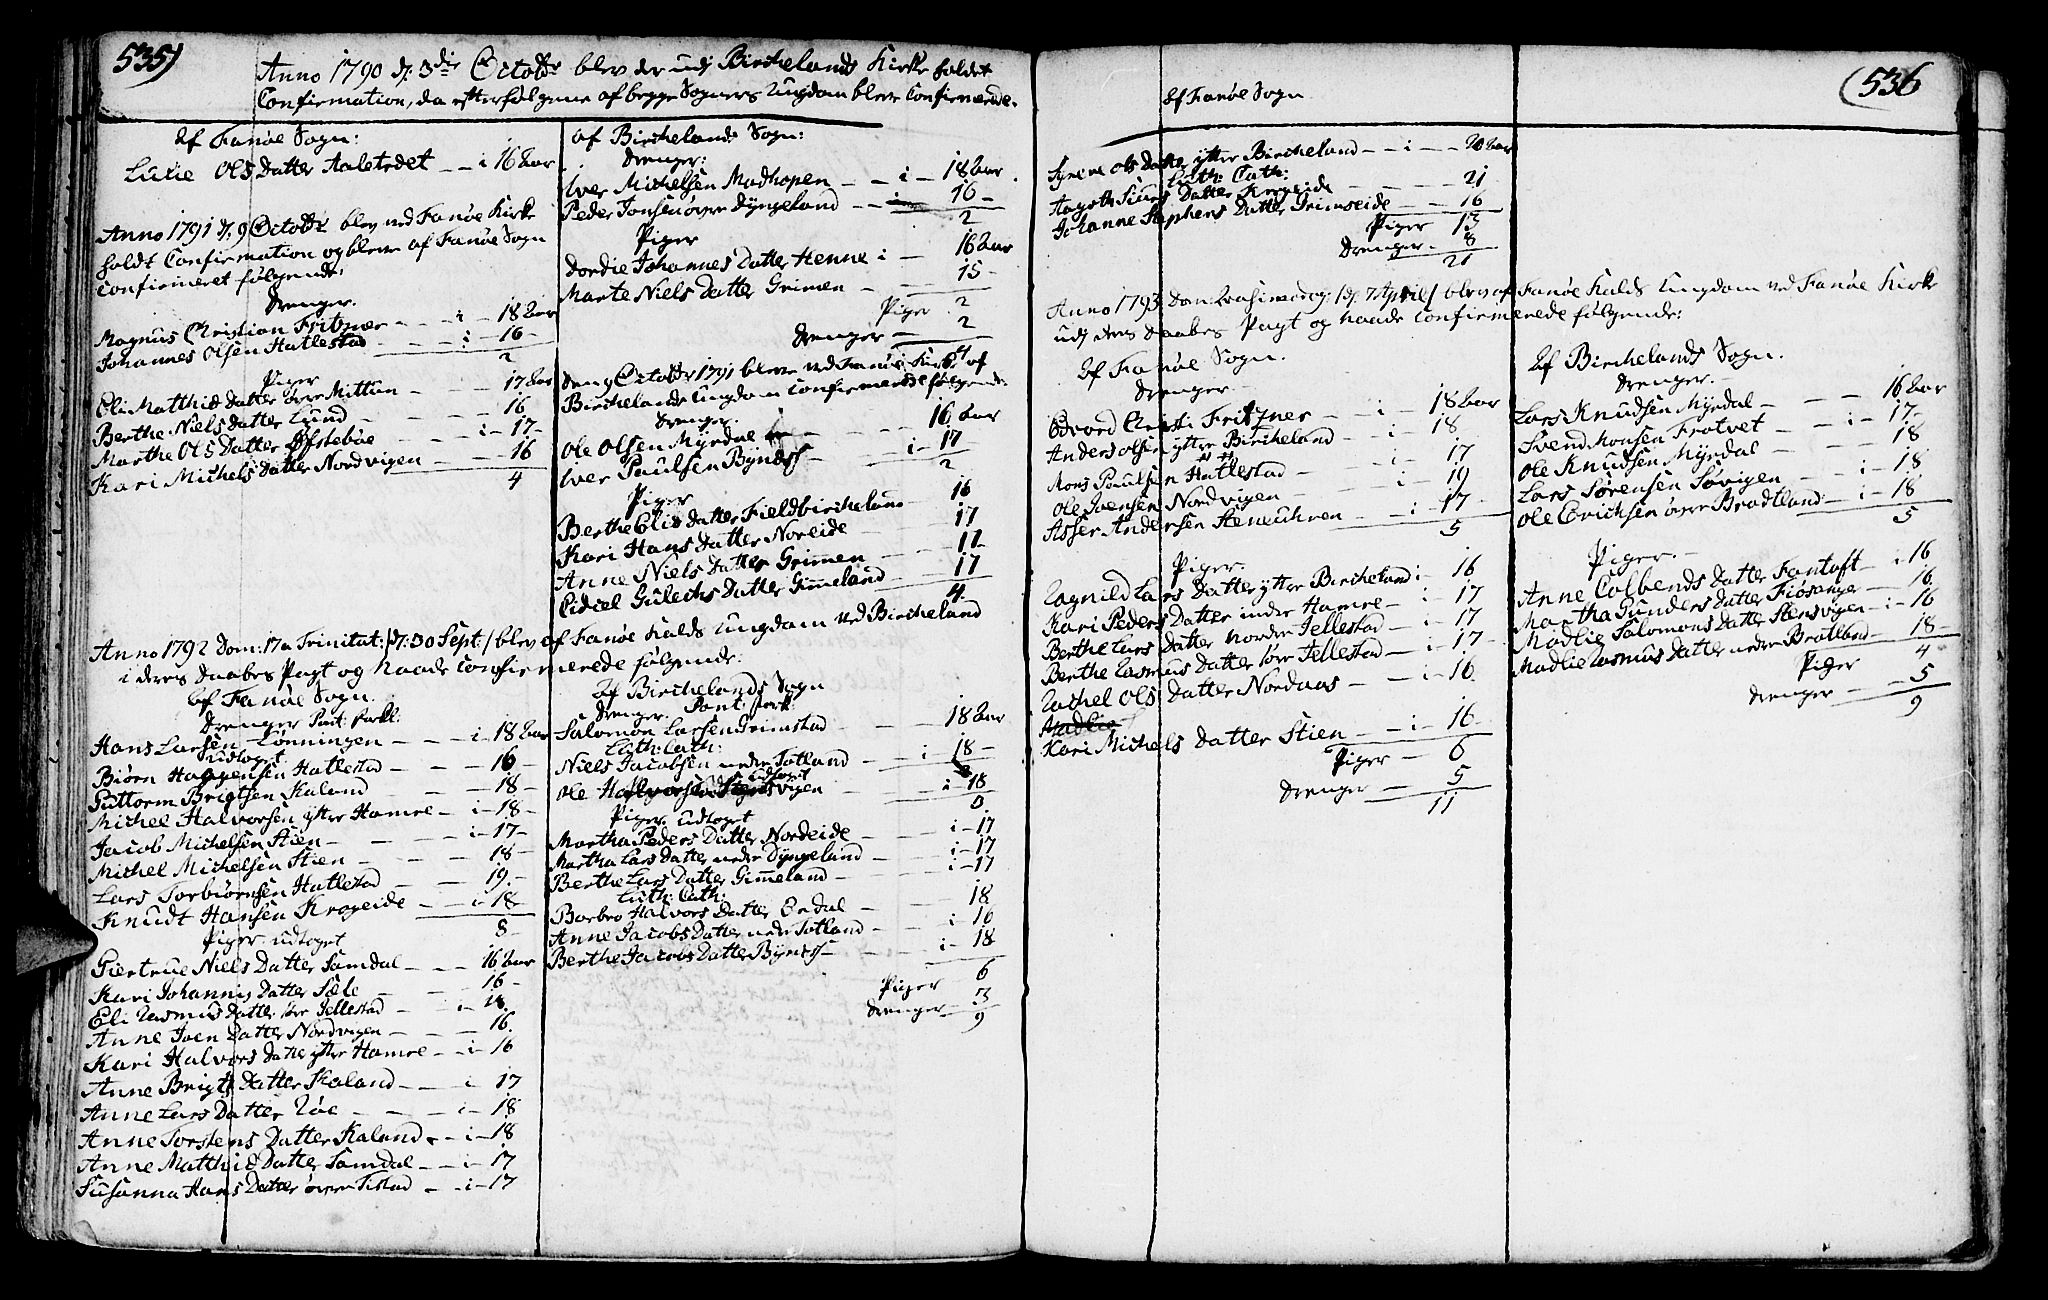 535)
Anno 1790 d: 3die Octobr blev der udj Birchelands Kirke holdet
Confirmation, da efterfølgene af begge Sogners Ungdom bleve Confirmerede.
Af Fanøe Sogn:
Lucie Ols Datter Aaletrdet — i 16 Aar
Anno 1791 d. 9 Octobr blev ved Fanøe Kirke
holdt Confirmation og bleve af Fanøe Sogn
Confirmeret følgende:
Drenger.
Magnus Christian Fritzner — i — 18 Aar
Johannes Olsen Hatlestad — i — 16
2
Piger
Eli Matthis Datter øvre Mittun — 17 Aar
Berthe Niels Datter Lund — 16
Marthe Ols Datter Øfstebøe — i — 17
Kari Michels Datter Nordvigen — 16
4
Anno 1792 Dom: 17a Trinitat: /d: 30 Sept:/ blev af Fanøe Kalds Ungdom ved Bircheland
i deres Daabes Pagt og Naade Confirmerede følgende:
Af Fanøe Sogn.
Drenger Pont: Forkl:
Hans Larsen Lønningen — i — 18 Aar
udtoget
Biørn Haagensen Hatlestad — 16
Guttorm Brigtsen Kaland — 18
Michel Halvorsen ytter Hamre — i — 18
Jacob Michelsen Stien — i — 17
Michel Michelsen Stien — 18
Lars Torbiørnsen Hatlestad — 19
Knudt Hansen Krogeide — i — 18
8
Piger udtoget
Giertrue Niels Datter Samdal — 16 Aar
Kari Johannis Datter Sæle — 16
Eli Rasmus Datter søre Jellestad — i — 18
Anne Joen Datter Nordvigen — 16
Kari Halvors Datter ytter Hamre — i — 16
Anne Brigts Datter Kaland — i — 17
Anne Lars Datter Røe — i — 18
Anne Torstens Datter Kaland — i — 18
Anne Matthis Datter Samdal — i — 17
Susanna Hans Datter øvre Tistad — i — 17
af Birchelands Sogn:
Drenger:
Iver Michelsen Madhopen — i — 18 Aar
Peder Jonsen øvre Dyngeland — 16
2
Piger
Dordie Johannes Datter Henne i — 16 Aar
Marte Niels Datter Grimen — 15
Piger 2
Drenger — 2
4
Den 9 Octobr 1791 bleve ved Fanøe Kirke af
Birchelands Ungdom Confirmerede følgende.
Drenger.
Ole Olsen Myrdal — 16 Aar
Iver Paulsen Byndes — i — 17
2
Piger
Berthe Elis Datter Fieldbircheland 16
Kari Hans Datter Noreide — 17
Anne Niels Datter Grimen — 17
Eidiel Gulechs Datter Gimmeland — 17
4
Af Birchelands Sogn
Drenger. Pont. fork:
Salomon Larsen Grimstad — 18 Aar
Luth: Cath:
Niels Jacobsen nedre Totland — i — 18
udtoget
Ole Halvorsen Stensvigen — i — 18
3
Piger udtoget
Martha Peders Datter Nordeide — i — 17
Martha Lars Datter nedre Dyngeland — i — 17
Berthe Lars Datter Gimmeland — i — 17
Luth: Cath:
Barbro Halvors Datter Endal — 18
Anne Jacobs Datter nedre Totland — i — 16
Berthe Jacobs Datter Byndes — i — 18
Piger 6
Drenger — 3
9
(536
Af Fanøe Sogn
Synene Ols Datter ytter Bircheland — i — 20 Aar
Luth: Cath:
Aagoth Siurs Datter Krogeide — 21
Johanne Stephens Datter Grimseide — 16
Piger 13
Drenger — 8
21
Anno 1793 Dom: Qvasimodog: /d: 7 April/ blev af Fanøe Kalds Ungdom ved Fanøe Kirke
udj deres Daabes Pagt og Naade Confirmerede følgende:
Af Fanøe Sogn.
Drenger —
Edvard Christi Fritzner — i — 18 Aar
Anders Olsen ytter Bircheland — i — 18
Mons Paulsen Hatlestad — i — 17
Ole Joensen Nordvigen — i — 19
Asser Andersen Steneuhren — i — 17
5
Piger.
Ragnild Lars Datter ytter Bircheland i — 16
Kari Peders Datter indre Hamre — i — 17
Berthe Lars Datter Nordre Jellestad — i — 17
Berthe Rasmus Datter søre Jellestad — i — 17
Rachel Ols Datter Nordaas — i — 16
Madlie
Kari Michels Datter Stien — i — 16
Piger — 6
Drenger — 5
11
Af Birchelands Sogn.
Drenger. —
Lars Knudsen Myrdal — 16 Aar
Svend Monsen Frotvet — i — 17
Ole Knudsen Myrdal — 18
Lars Sørensen Søvigen — i — 18
Ole Erichsen øvre Bratland — i — 18
5
Piger. —
Anne Colbends Datter Fantoft — i 16
Martha Gunders Datter Fiøsanger — 16
Madlie Salomons Datter Stensvigen — i — 16
Madlie Rasmus Datter nedre Bratland — 18
Piger 4
Drenger — 5
9